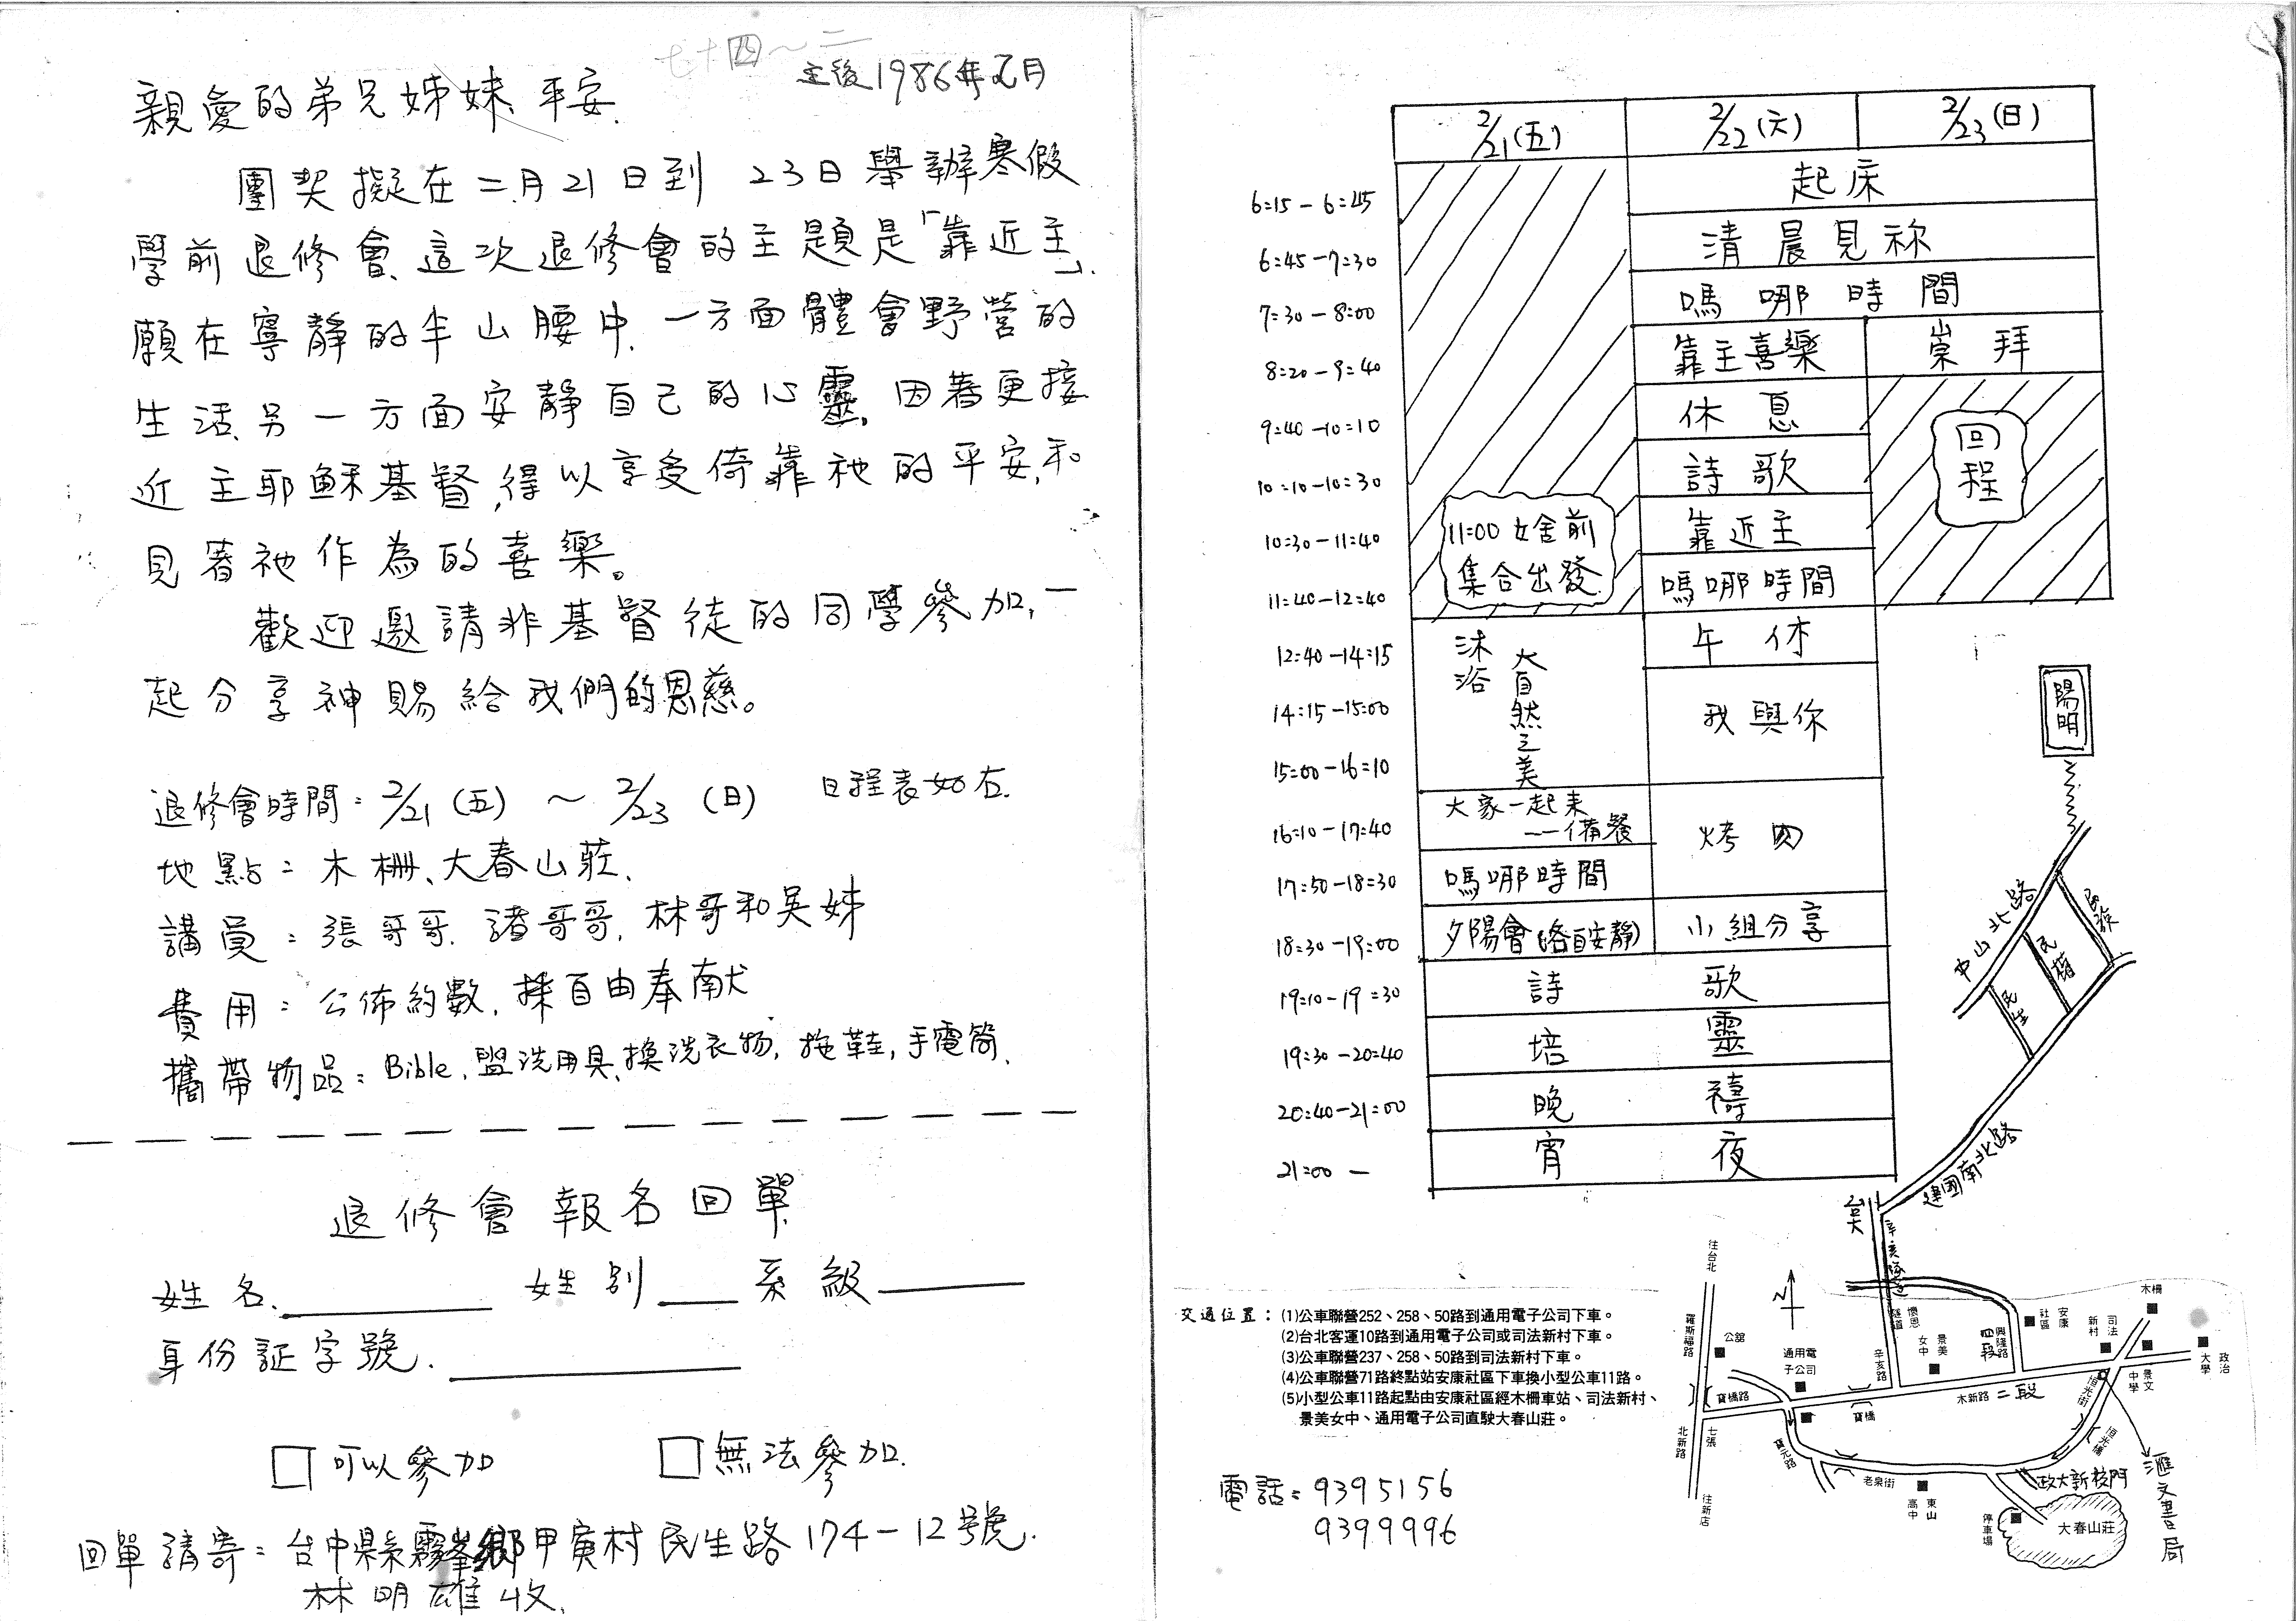 七十四~二
主後1986年元月
親愛的弟兄姊妹、平安.
團契擬在二月21日到23日舉辦寒假
學前退修會、這次退修會的主題是「靠近主」.
願在寧靜的半山腰中、一方面體會野營的
生活、另一方面安靜自己的心靈、因著更接
近主耶穌基督,得以享受倚靠祂的平安,和
見著祂作為的喜樂。
歡迎邀請非基督徒的同學參加,一
起分享神賜給我們的恩慈。
退修會時間:2/21(五)~2/23(日) 日程表如右.
地點:木柵、大春山莊.
講員:張哥哥.諸哥哥,林哥和吳姊
費用:公佈約數,採自由奉献
攜帶物品:Bible,盥洗用具,換洗衣物,拖鞋,手電筒.
退修會報名回單
姓名. 姓別 系級
身份証字號.
□可以參加 □無法參加.
回單請寄:台中縣霧峯鄉甲寅村民生路174-12號.
林明雄收.
2/21(五) 2/22(六) 2/23(日)
6:15-6:45 起床
6:45-7:30 清晨見祢
7:30-8:00 嗎哪時間
8:20-9:40 靠主喜樂 崇拜
9:40-10:10 休息
回程
10:10-10:30 詩歌
10:30-11:40 靠近主
11:00女舍前
集合出發
11:40-12:40 嗎哪時間
12:40-14:15 沐浴大自然之美 午休
14:15-15:00 我與你
15:00-16:10
16:10-17:40 大家一起来
——備餐 烤肉
17:50-18:30 嗎哪時間
18:30-19:00 夕陽會(各自安靜) 小組分享
19:10-19:30 詩歌
19:30-20:40 培靈
20:40-21:00 晚禱
21:00- 宵夜
陽明
中山北路
民族
民權
民生
建國南北路
台大
辛亥隧道
交通位置:(1)公車聯營252、258、50路到通用電子公司下車。
(2)台北客運10路到通用電子公司或司法新村下車。
(3)公車聯營237、258、50路到司法新村下車。
(4)公車聯營71路終點站安康社區下車換小型公車11路。
(5)小型公車11路起點由安康社區經木柵車站、司法新村、
景美女中、通用電子公司直駛大春山莊。
電話:9395156
9399996
往台北
羅斯福路
N
公館
通用電子公司
辛亥路
懷恩隧道
景美女中
興隆路
四段
安康社區
司法新村
木柵
景文中學
政治大學
寶橋路
寶橋
木新路二段
恒光街
恒光橋
北新路
七張
往新店
寶元路
老泉街
東山高中
政大新校門
停車場
大春山莊
滙文書局